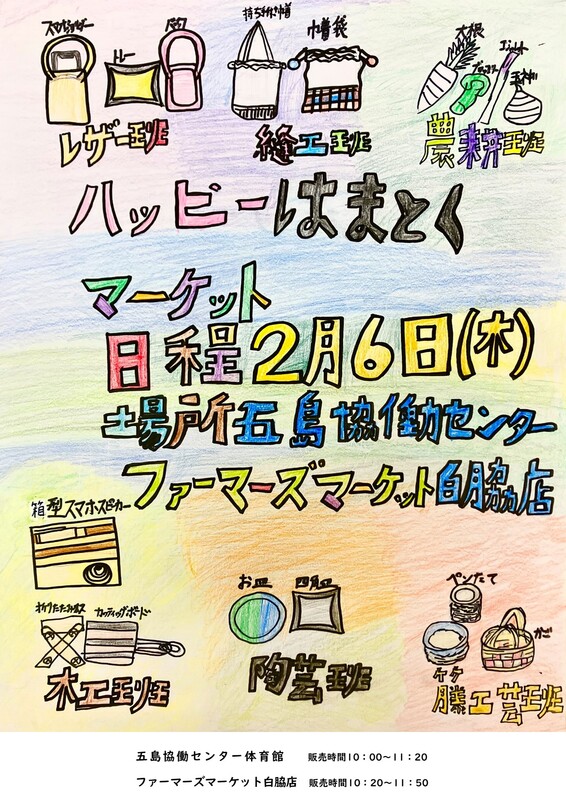 スマホカバー
トレー
バック
レザー班
持ち手付巾着
巾着袋
縫工班
大根
ブロッコリー
玉ネギ
農耕班
ハッピーはまとく
マーケット
日程2月6日(木)
場所五島協働センター
ファーマーズマーケット白脇店
箱型スマホスピーカー
カッティングボード
木工班
お皿
四角皿
陶芸班
ペンたて
かご
籐工芸班
五島協働センター体育館 販売時間10:00~11:20
ファーマーズマーケット白脇店 販売時間10:20~11:50